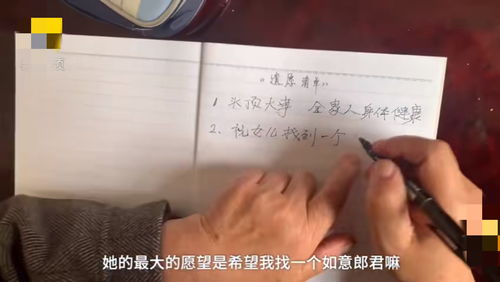 《遗愿清单》
1 头顶大事 全家人身体健康
2、祝女儿找到一个
她的最大的愿望是希望我找一个如意郎君嘛